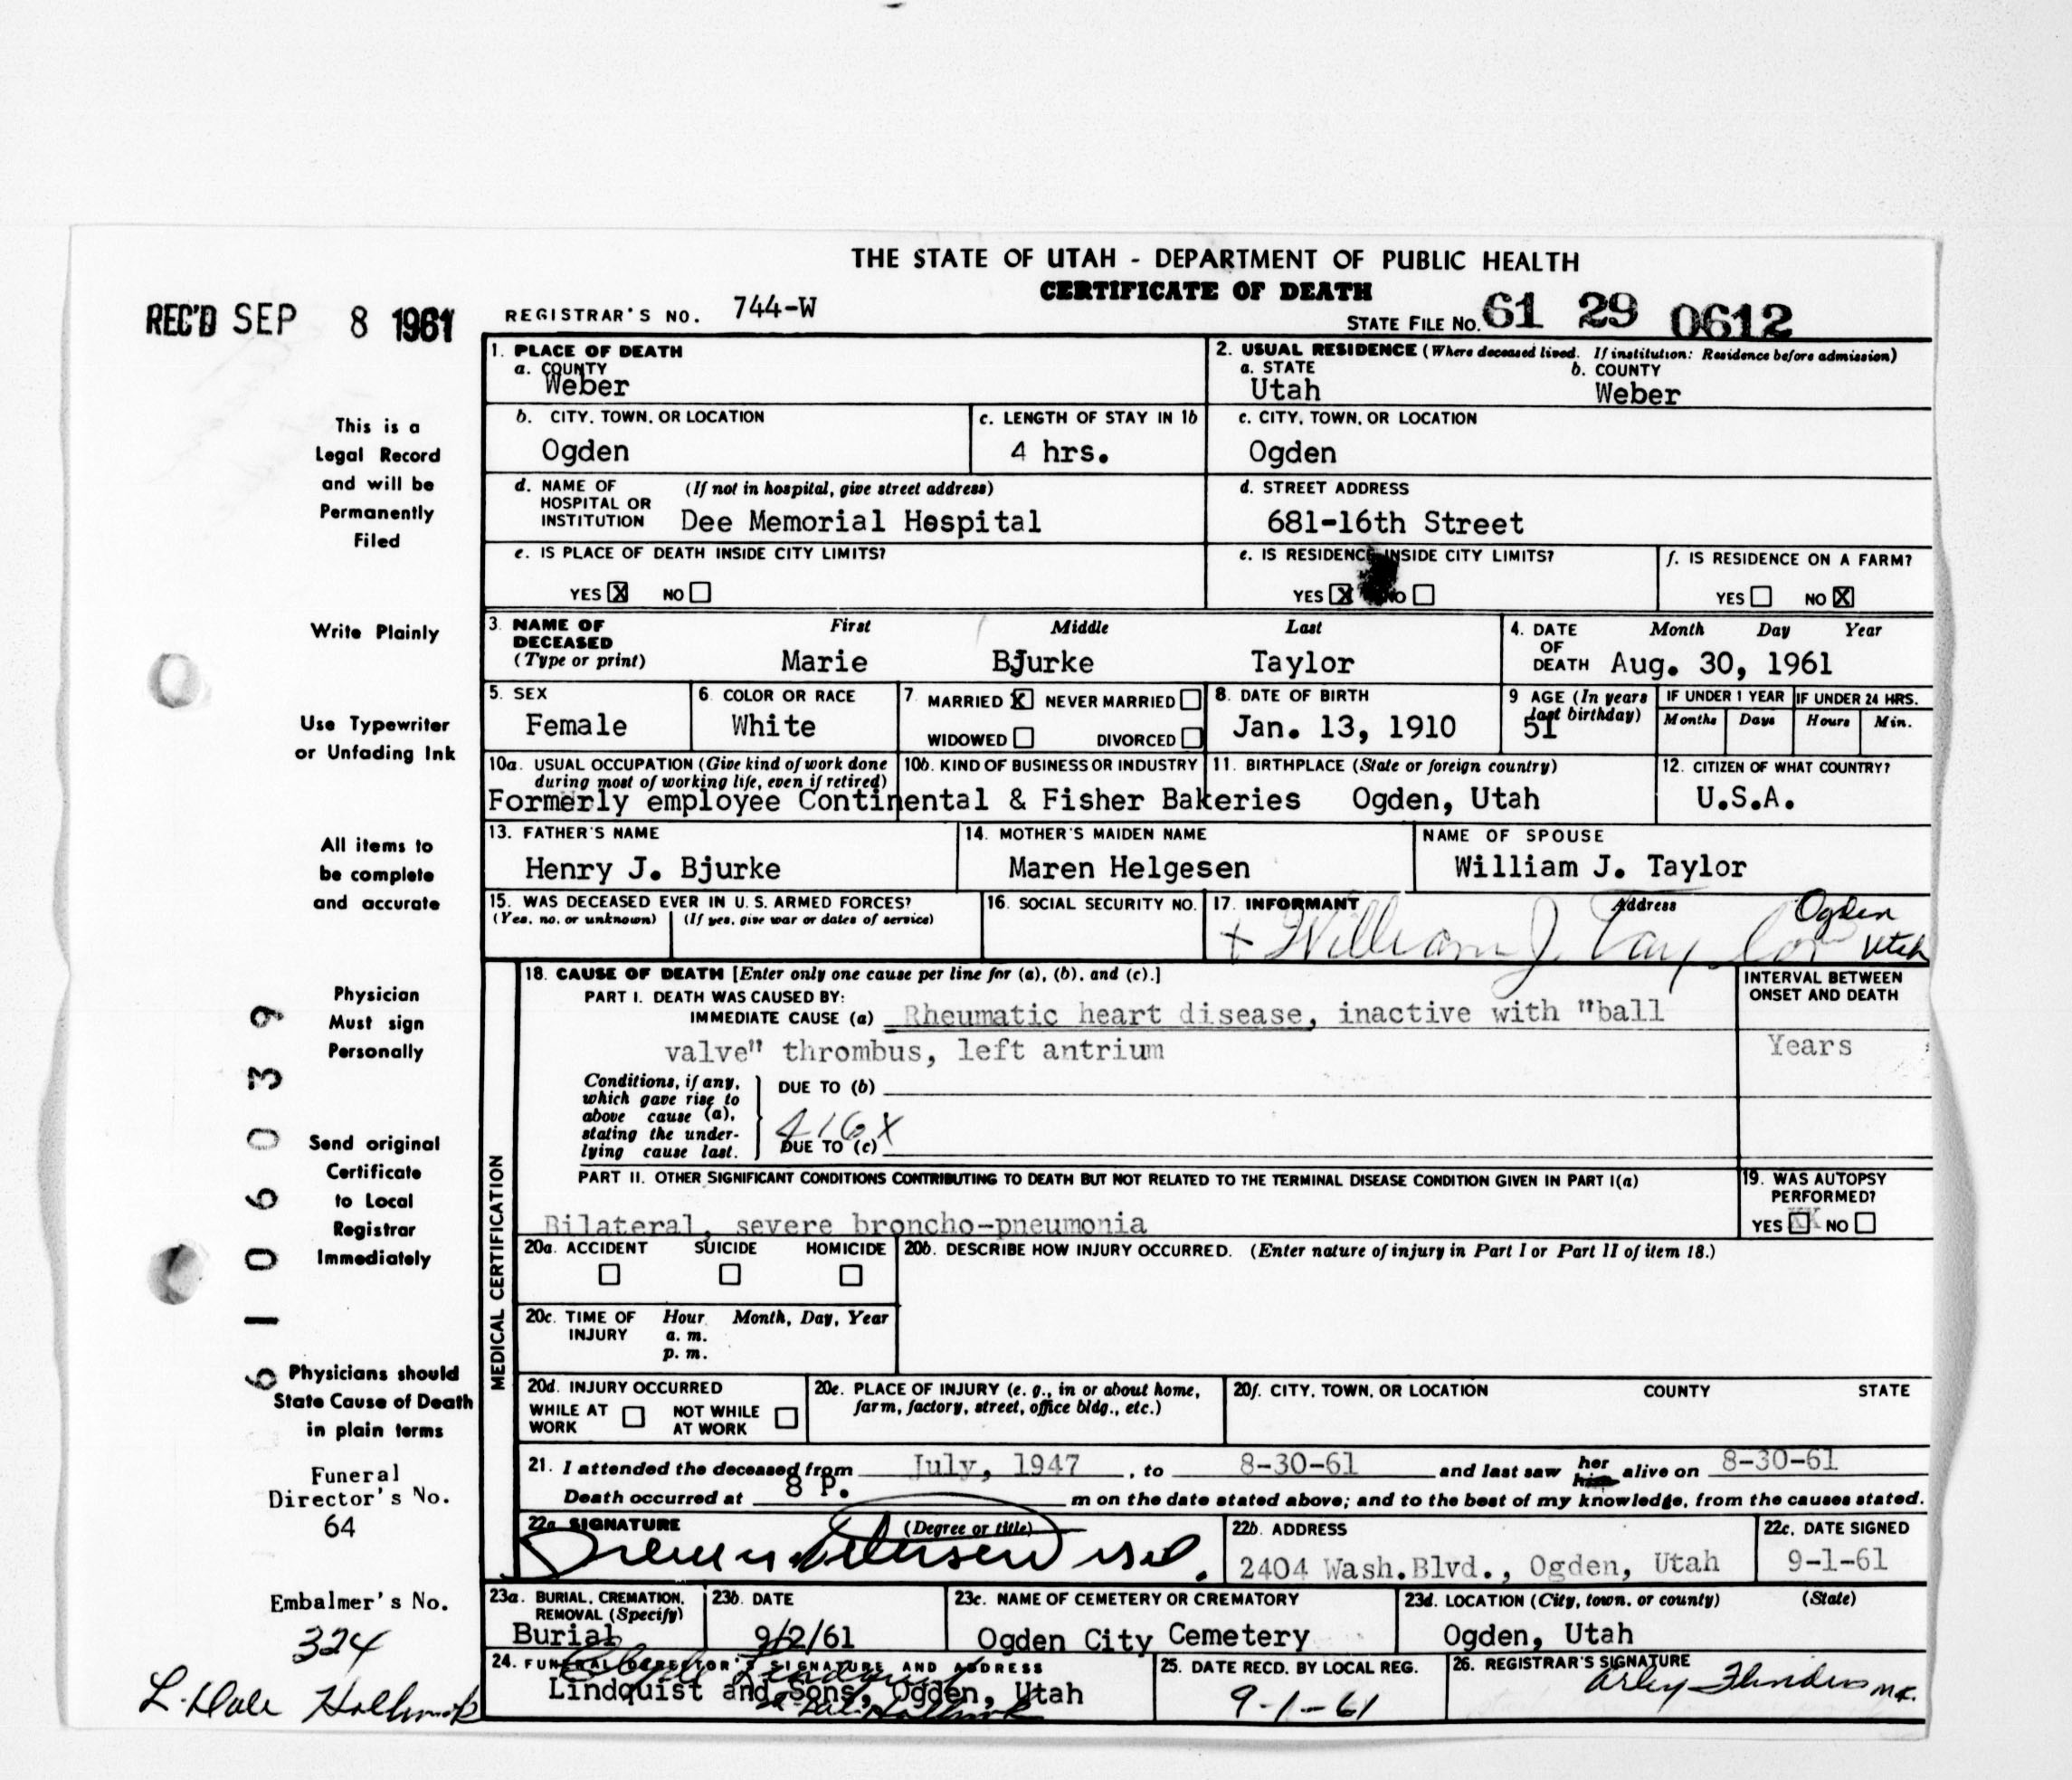 THE STATE OF UTAH - DEPARTMENT OF PUBLIC HEALTH
CERTIFICATE OF DEATH
REC'D SEP 8 1961
REGISTRAR'S NO. 744-W
STATE FILE NO. 61 29 0612
This is a
Legal Record
and will be
Permanently
Filed
Write Plainly
Use Typewriter
or Unfading Ink
All items to
be complete
and accurate
Physician
Must sign
Personally
Send original
Certificate
to Local
Registrar
Immediately
Physicians should
State Cause of Death
in plain terms
Funeral
Director's No.
64
Embalmer's No.
324
L. Dale Holbrook
6106039
1. PLACE OF DEATH
a. COUNTY
Weber
2. USUAL RESIDENCE (Where deceased lived. If institution: Residence before admission)
a. STATE b. COUNTY
Utah Weber
b. CITY, TOWN, OR LOCATION
Ogden
c. LENGTH OF STAY IN 1b
4 hrs.
c. CITY, TOWN, OR LOCATION
Ogden
d. NAME OF (If not in hospital, give street address)
HOSPITAL OR
INSTITUTION Dee Memorial Hospital
d. STREET ADDRESS
681-16th Street
e. IS PLACE OF DEATH INSIDE CITY LIMITS?
YES X NO
e. IS RESIDENCE INSIDE CITY LIMITS?
YES X NO
f. IS RESIDENCE ON A FARM?
YES NO X
3. NAME OF First Middle Last
DECEASED
(Type or print) Marie BJurke Taylor
4. DATE Month Day Year
OF
DEATH Aug. 30, 1961
5. SEX
Female
6. COLOR OR RACE
White
7. MARRIED X NEVER MARRIED
WIDOWED DIVORCED
8. DATE OF BIRTH
Jan. 13, 1910
9 AGE (In years
last birthday)
51
IF UNDER 1 YEAR IF UNDER 24 HRS.
Months Days Hours Min.
10a. USUAL OCCUPATION (Give kind of work done
during most of working life, even if retired)
10b. KIND OF BUSINESS OR INDUSTRY
Formerly employee Continental & Fisher Bakeries
11. BIRTHPLACE (State or foreign country)
Ogden, Utah
12. CITIZEN OF WHAT COUNTRY?
U.S.A.
13. FATHER'S NAME
Henry J. Bjurke
14. MOTHER'S MAIDEN NAME
Maren Helgesen
NAME OF SPOUSE
William J. Taylor
15. WAS DECEASED EVER IN U. S. ARMED FORCES?
(Yes, no, or unknown) (If yes, give war or dates of service)
16. SOCIAL SECURITY NO.
17. INFORMANT Address
+ William J. Taylor Ogden
Utah
MEDICAL CERTIFICATION
18. CAUSE OF DEATH [Enter only one cause per line for (a), (b), and (c).]
PART I. DEATH WAS CAUSED BY:
IMMEDIATE CAUSE (a) Rheumatic heart disease, inactive with "ball
valve" thrombus, left antrium
INTERVAL BETWEEN
ONSET AND DEATH
Years
Conditions, if any,
which gave rise to
above cause (a),
stating the under-
lying cause last.
DUE TO (b)
416X
DUE TO (c)
PART II. OTHER SIGNIFICANT CONDITIONS CONTRIBUTING TO DEATH BUT NOT RELATED TO THE TERMINAL DISEASE CONDITION GIVEN IN PART I(a)
Bilateral, severe broncho-pneumonia
19. WAS AUTOPSY
PERFORMED?
YES XX NO
20a. ACCIDENT SUICIDE HOMICIDE
20b. DESCRIBE HOW INJURY OCCURRED. (Enter nature of injury in Part I or Part II of item 18.)
20c. TIME OF Hour Month, Day, Year
INJURY a. m.
p. m.
20d. INJURY OCCURRED
WHILE AT NOT WHILE
WORK AT WORK
20e. PLACE OF INJURY (e. g., in or about home,
farm, factory, street, office bldg., etc.)
20f. CITY, TOWN, OR LOCATION COUNTY STATE
21. I attended the deceased from July, 1947, to 8-30-61 and last saw her him alive on 8-30-61
Death occurred at 8 P. m on the date stated above; and to the best of my knowledge, from the causes stated.
22a SIGNATURE (Degree or title)
22b. ADDRESS
2404 Wash.Blvd., Ogden, Utah
22c. DATE SIGNED
9-1-61
23a. BURIAL, CREMATION,
REMOVAL (Specify)
Burial
23b. DATE
9/2/61
23c. NAME OF CEMETERY OR CREMATORY
Ogden City Cemetery
23d. LOCATION (City, town, or county) (State)
Ogden, Utah
24. FUNERAL DIRECTOR'S SIGNATURE AND ADDRESS
Lindquist and Sons, Ogden, Utah
L. Dale Holbrook
25. DATE RECD. BY LOCAL REG.
9-1-61
26. REGISTRAR'S SIGNATURE
Arley Flinders